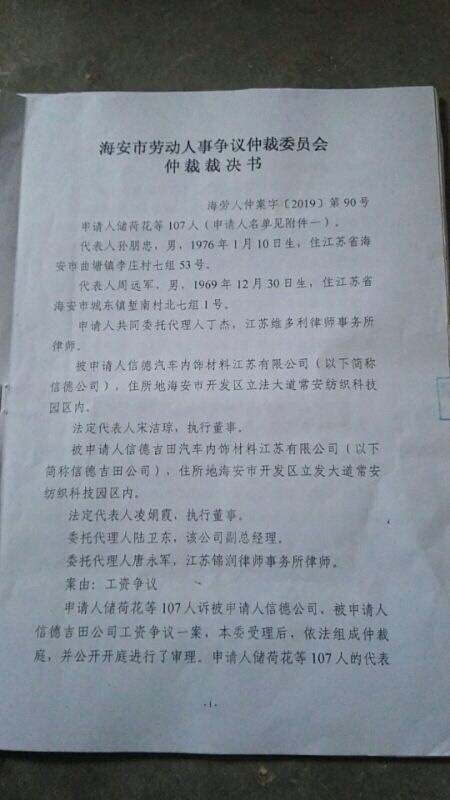 海安市劳动人事争议仲裁委员会
仲裁裁决书
海劳人仲案字〔2019〕第90号
申请人储荷花等107人（申请人名单见附件一）。
代表人孙朋忠，男，1976年1月10日生，住江苏省海
安市曲塘镇李庄村七组53号。
代表人周远军，男，1969年12月30日生，住江苏省
海安市城东镇堑南村北七组1号。
申请人共同委托代理人丁杰，江苏维多利律师事务所
律师。
被申请人信德汽车内饰材料江苏有限公司（以下简称
信德公司），住所地海安市开发区立法大道常安纺织科技
园区内。
法定代表人宋洁琼，执行董事。
被申请人信德吉田汽车内饰材料江苏有限公司（以下
简称信德吉田公司），住所地海安市开发区立发大道常安
纺织科技园区内。
法定代表人凌娟霞，执行董事。
委托代理人陆卫东，该公司副总经理。
委托代理人唐永军，江苏锦润律师事务所律师。
案由：工资争议
申请人储荷花等107人诉被申请人信德公司、被申请人
信德吉田公司工资争议一案，本委受理后，依法组成仲裁
庭，并公开开庭进行了审理。申请人储荷花等107人的代表
-1-